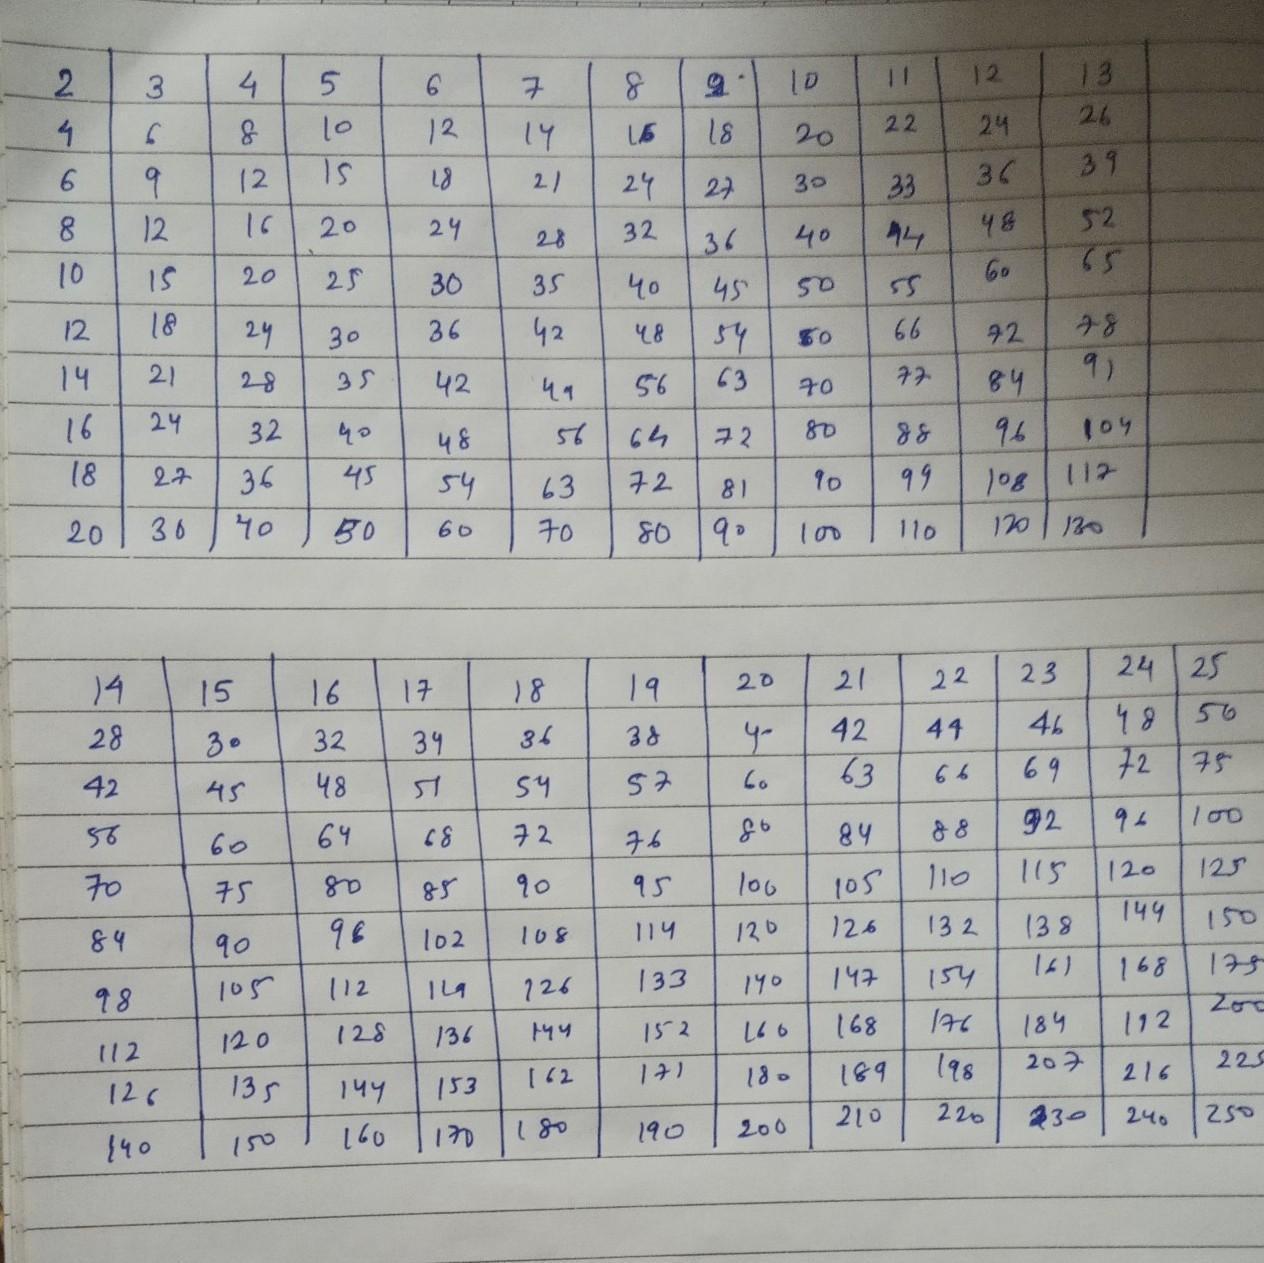 2 3 4 5 6 7 8 9 10 11 12 13
4 6 8 10 12 14 16 18 20 22 24 26
6 9 12 15 18 21 24 27 30 33 36 39
8 12 16 20 24 28 32 36 40 44 48 52
10 15 20 25 30 35 40 45 50 55 60 65
12 18 24 30 36 42 48 54 60 66 72 78
14 21 28 35 42 49 56 63 70 77 84 91
16 24 32 40 48 56 64 72 80 88 96 104
18 27 36 45 54 63 72 81 90 99 108 117
20 30 40 50 60 70 80 90 100 110 120 130
14 15 16 17 18 19 20 21 22 23 24 25
28 30 32 34 36 38 40 42 44 46 48 50
42 45 48 51 54 57 60 63 66 69 72 75
56 60 64 68 72 76 80 84 88 92 96 100
70 75 80 85 90 95 100 105 110 115 120 125
84 90 96 102 108 114 120 126 132 138 144 150
98 105 112 119 126 133 140 147 154 161 168 175
112 120 128 136 144 152 160 168 176 184 192 200
126 135 144 153 162 171 180 189 198 207 216 225
140 150 160 170 180 190 200 210 220 230 240 250